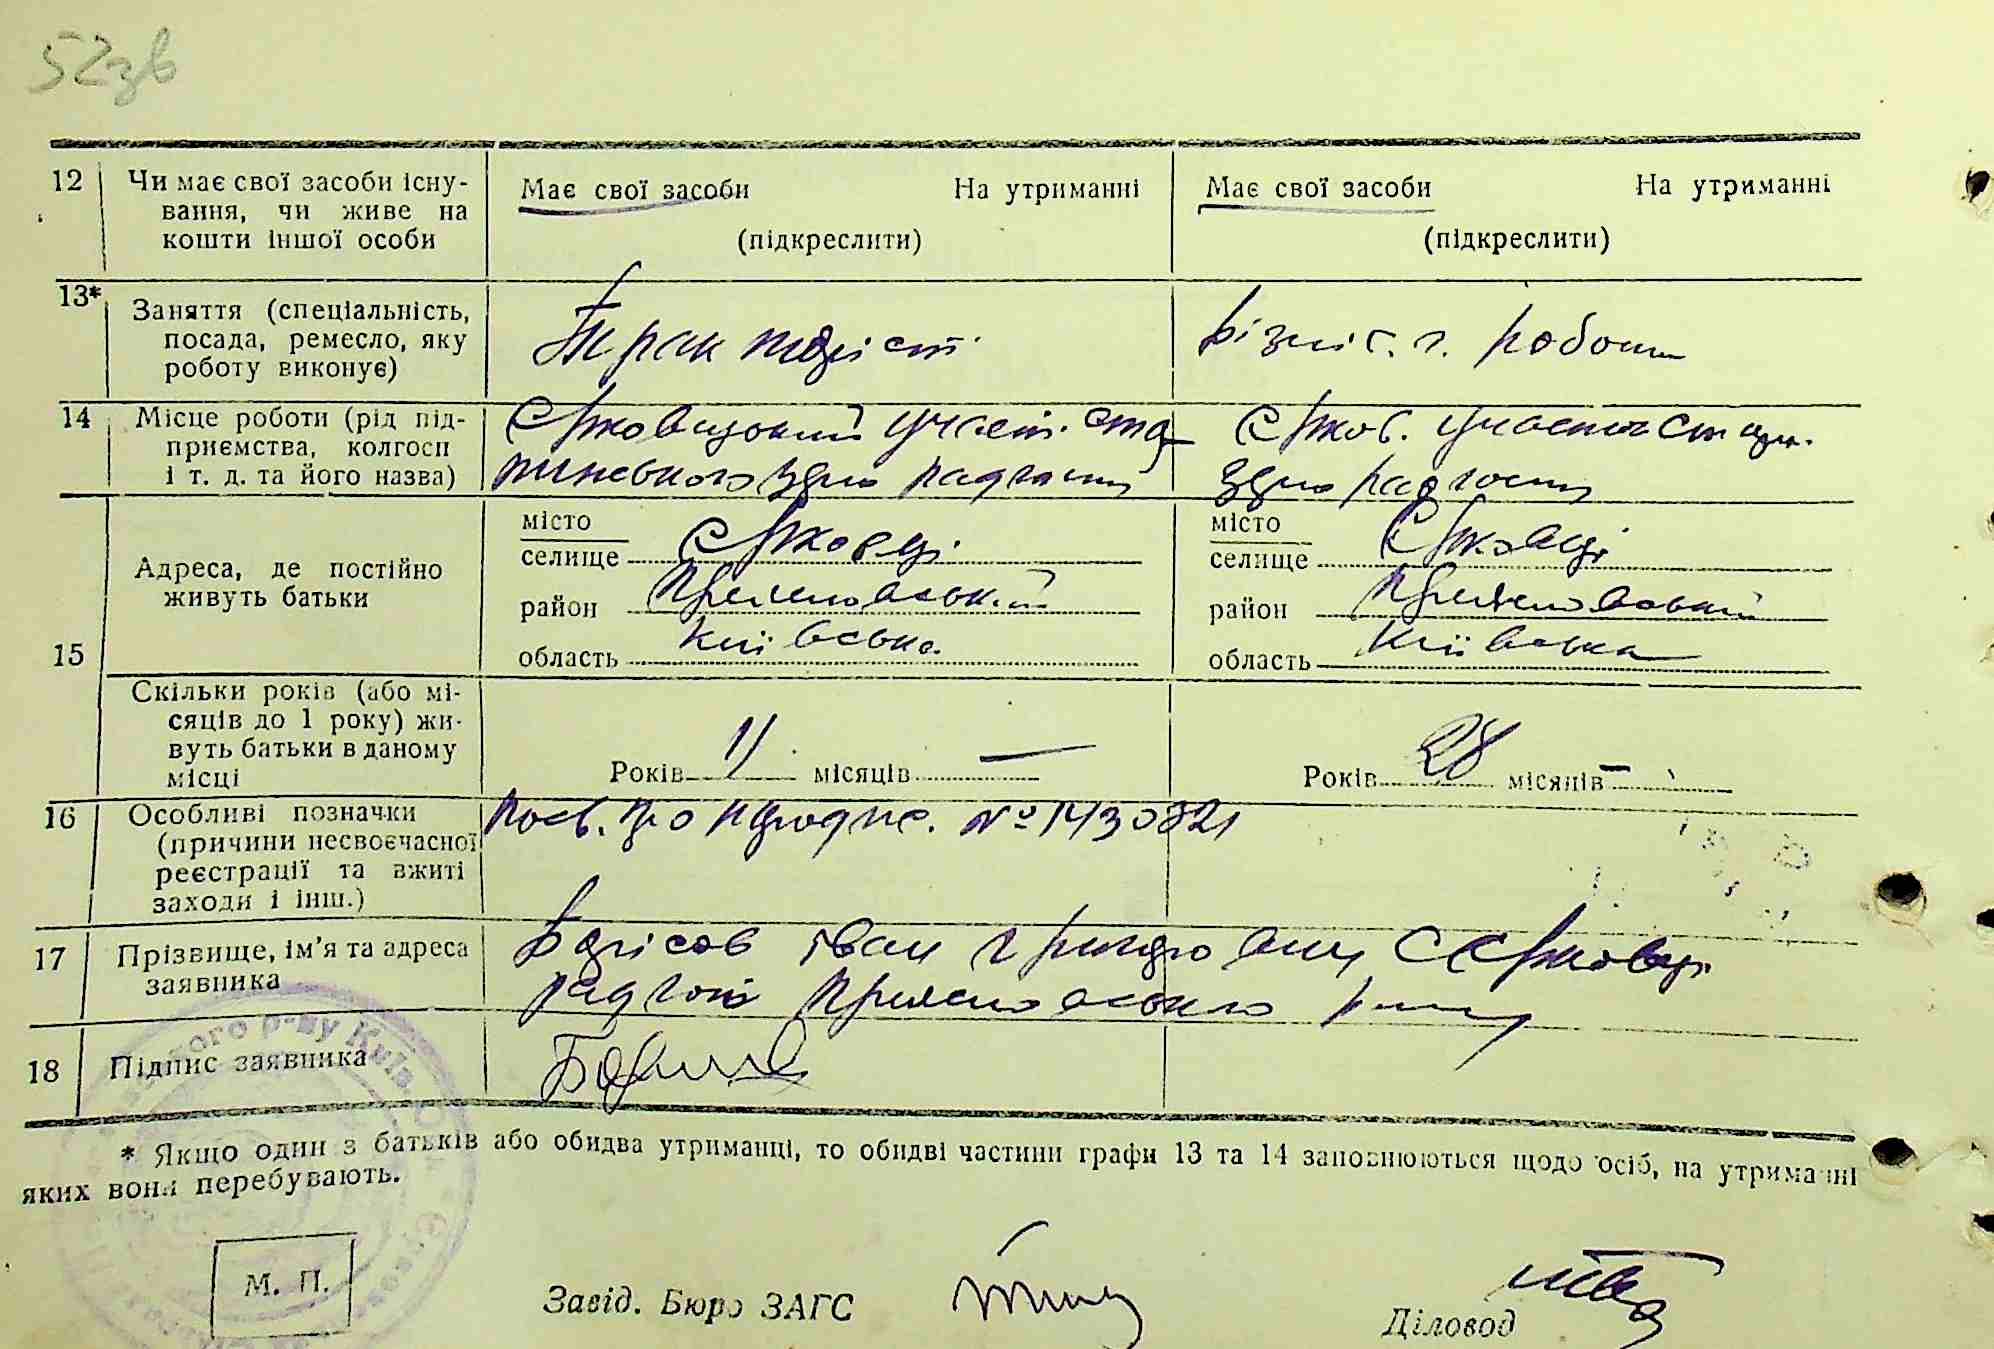 52зв
12 Чи має свої засоби існу-
вання, чи живе на
кошти іншої особи
Має свої засоби На утриманні
(підкреслити)
Має свої засоби На утриманні
(підкреслити)
13* Заняття (спеціальність,
посада, ремесло, яку
роботу виконує)
Тракторист
різні с. г. роботи
14 Місце роботи (рід під-
приємства, колгосп
і т. д. та його назва)
Єрковецький участ.
зерно радгосп
Єрков. участок
зерно радгосп
15 Адреса, де постійно
живуть батьки
місто
селище Єрковці
район
область Київська
місто
селище Єрковці
район
область Київська
Скільки років (або мі-
сяців до 1 року) жи-
вуть батьки в даному
місці
Років 11 місяців —
Років 28 місяців —
16 Особливі позначки
(причини несвоєчасної
реєстрації та вжиті
заходи і інш.)
Посв. про народже. № 1430821
17 Прізвище, ім’я та адреса
заявника
Борісов Іван с Єрковці
радгосп
18 Підпис заявника
* Якщо один з батьків або обидва утриманці, то обидві частини графи 13 та 14 заповнюються щодо осіб, на утриманні
яких вони перебувають.
М. П.
Завід. Бюро ЗАГС
Діловод